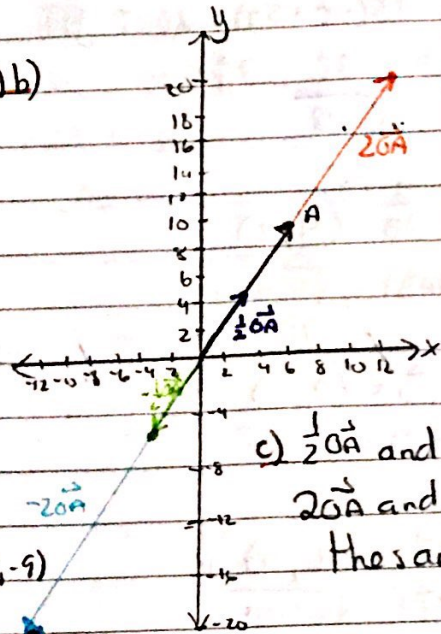 b)
y
20
18
16
14
12
10
8
6
4
2
2OA
A
½OA
-12 -10 -8 -6 -4 -2 2 4 6 8 10 12 x
-4
-8
-12
-16
-20
-2OA
c) ½OA and
2OA and
the sa
-9)